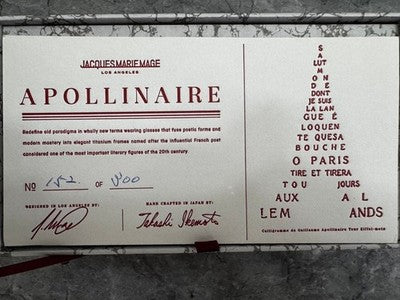 JACQUES MARIE MAGE
LOS ANGELES
APOLLINAIRE
Redefine old paradigms in wholly new terms wearing glasses that fuse poetic forms and
modern mastery into elegant titanium frames named after the influential French poet
considered one of the most important literary figures of the 20th century.
Nº 152 OF 300
DESIGNED IN LOS ANGELES BY:
HAND CRAFTED IN JAPAN BY:
Takashi
S
A
LUT
M
ON
DE
DONT
JE SUIS
LA LAN
GUE É
LOQUEN
TE QUESA
BOUCHE
O PARIS
TIRE ET TIRERA
TOU JOURS
AUX A L
LEM ANDS
Calligramme de Guillaume Apollinaire Tour Eiffel-mots